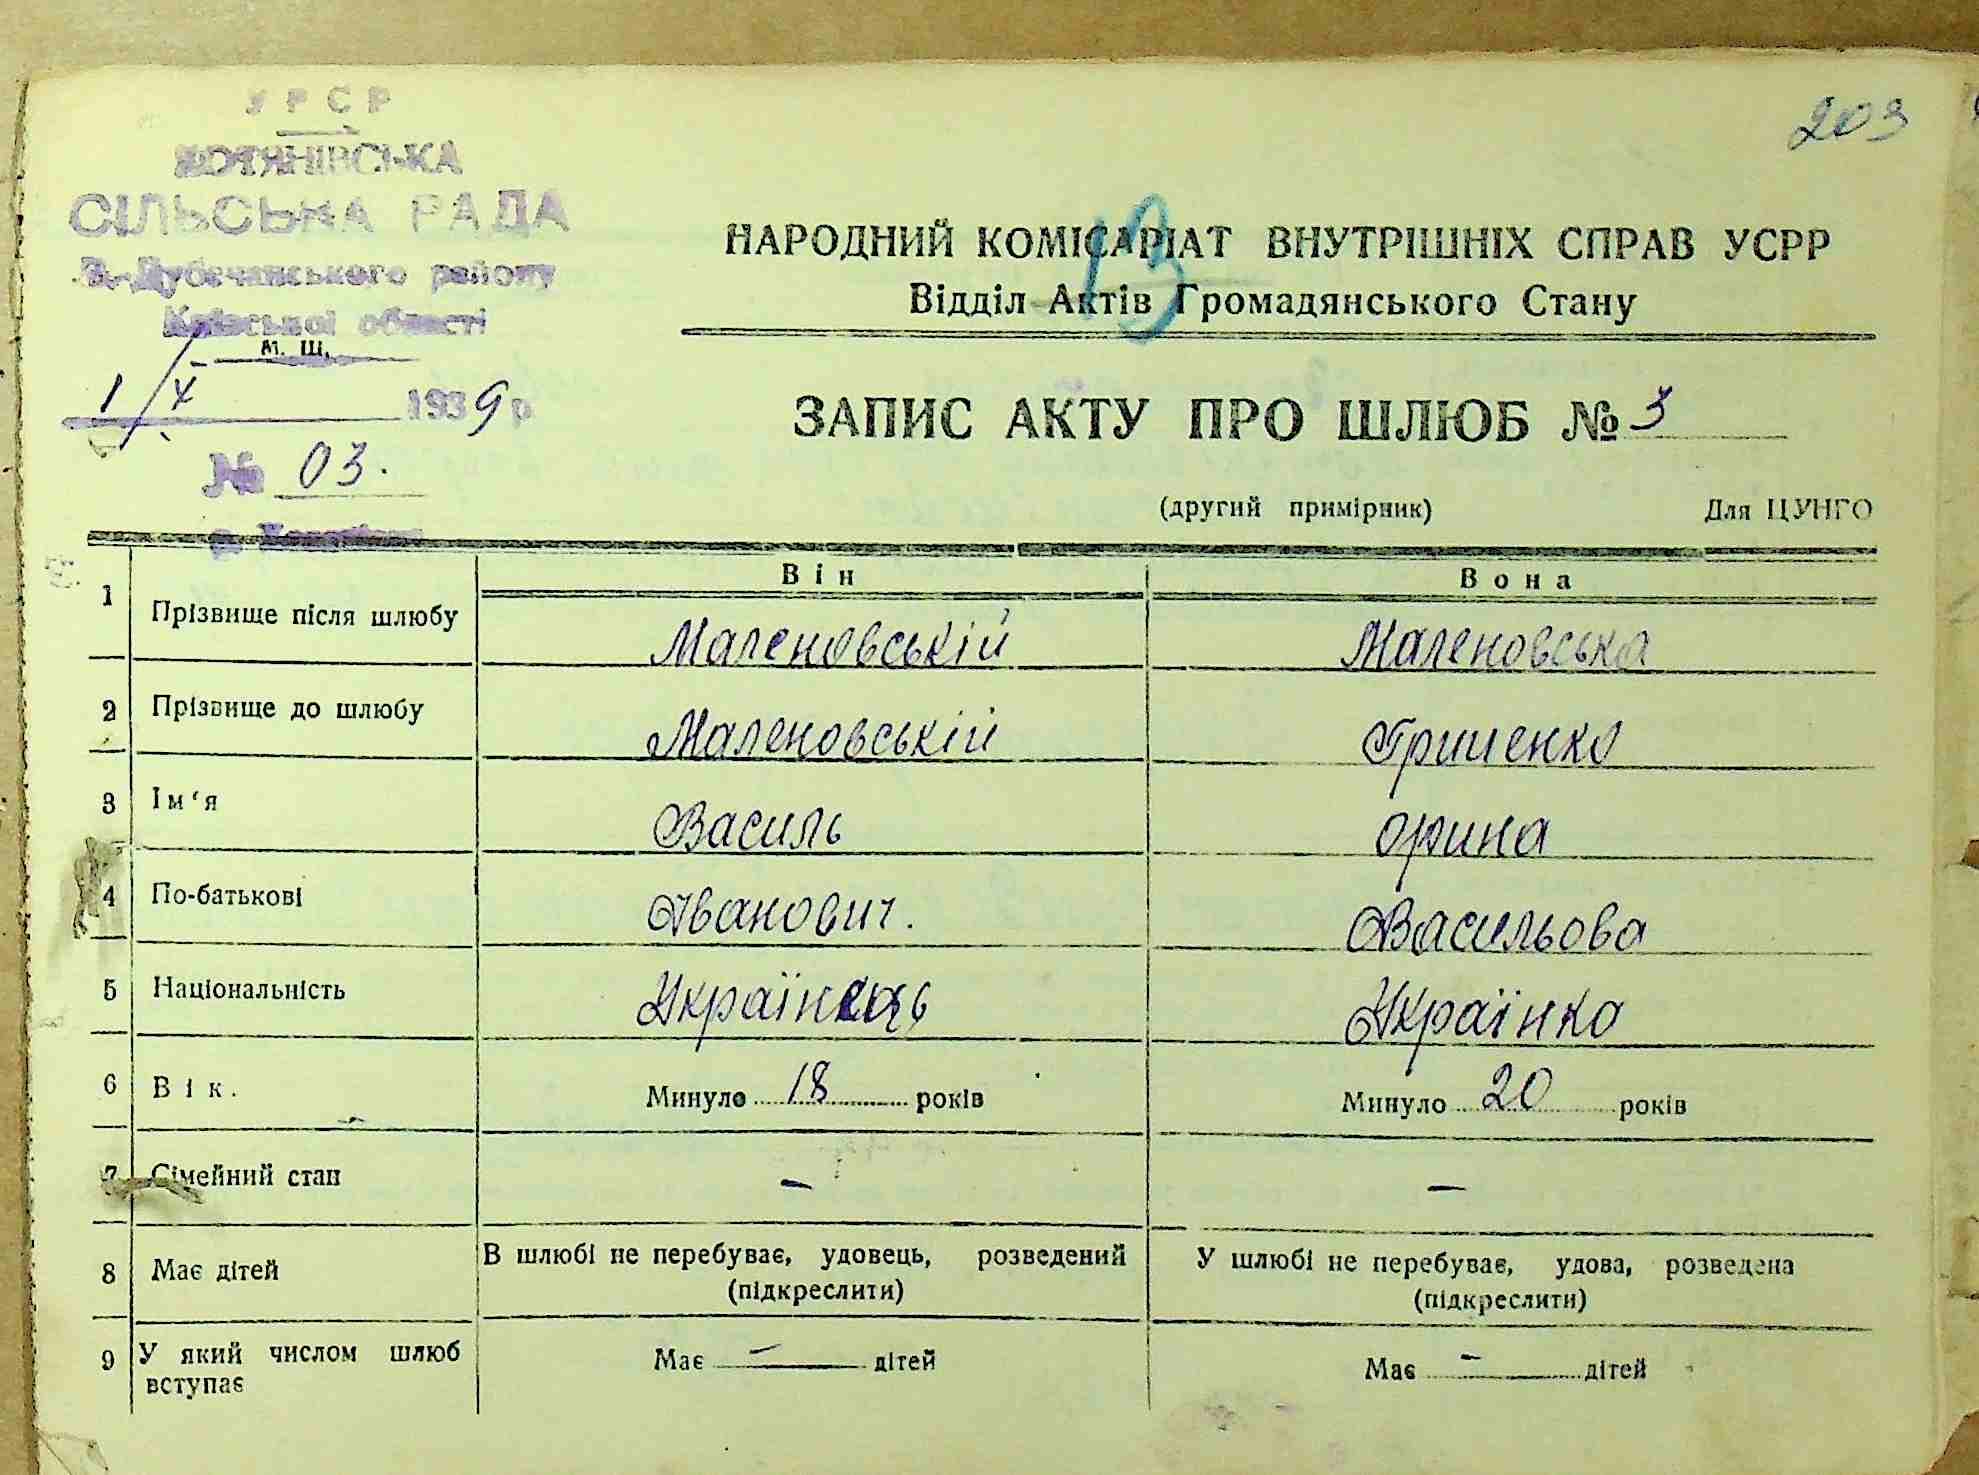 203
У Р С Р
СІЛЬСЬКА РАДА
Дубечанського району
Київської області
М. Ш.
1/X 1939 р.
№ 03.
13
НАРОДНИЙ КОМІСАРІАТ ВНУТРІШНІХ СПРАВ УСРР
Відділ Актів Громадянського Стану
ЗАПИС АКТУ ПРО ШЛЮБ № 3
(другий примірник) Для ЦУНГО
Він Вона
1 Прізвище після шлюбу Маленовській Маленовська
2 Прізвище до шлюбу Маленовській Гриценко
3 Ім‘я Василь Орина
4 По-батькові Іванович. Васильова
5 Національність Українець Українка
6 Вік. Минуло 18 років Минуло 20 років
7 Сімейний стан – –
8 Має дітей В шлюбі не перебуває, удовець, розведений У шлюбі не перебуває, удова, розведена
(підкреслити) (підкреслити)
9 У який числом шлюб Має – дітей Має – дітей
вступає